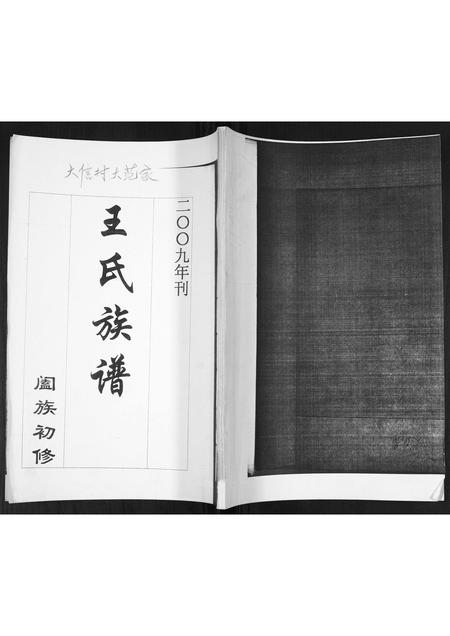 大信村大范家
二〇〇九年刊
王氏族谱
阖族初修